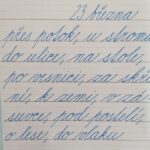 23. března
přes potok, u stromu
do ulice, na stole,
po vesnici, za skří
ní, k zemi, v zá
suvce, pod postelí,
o lese, do vlaku